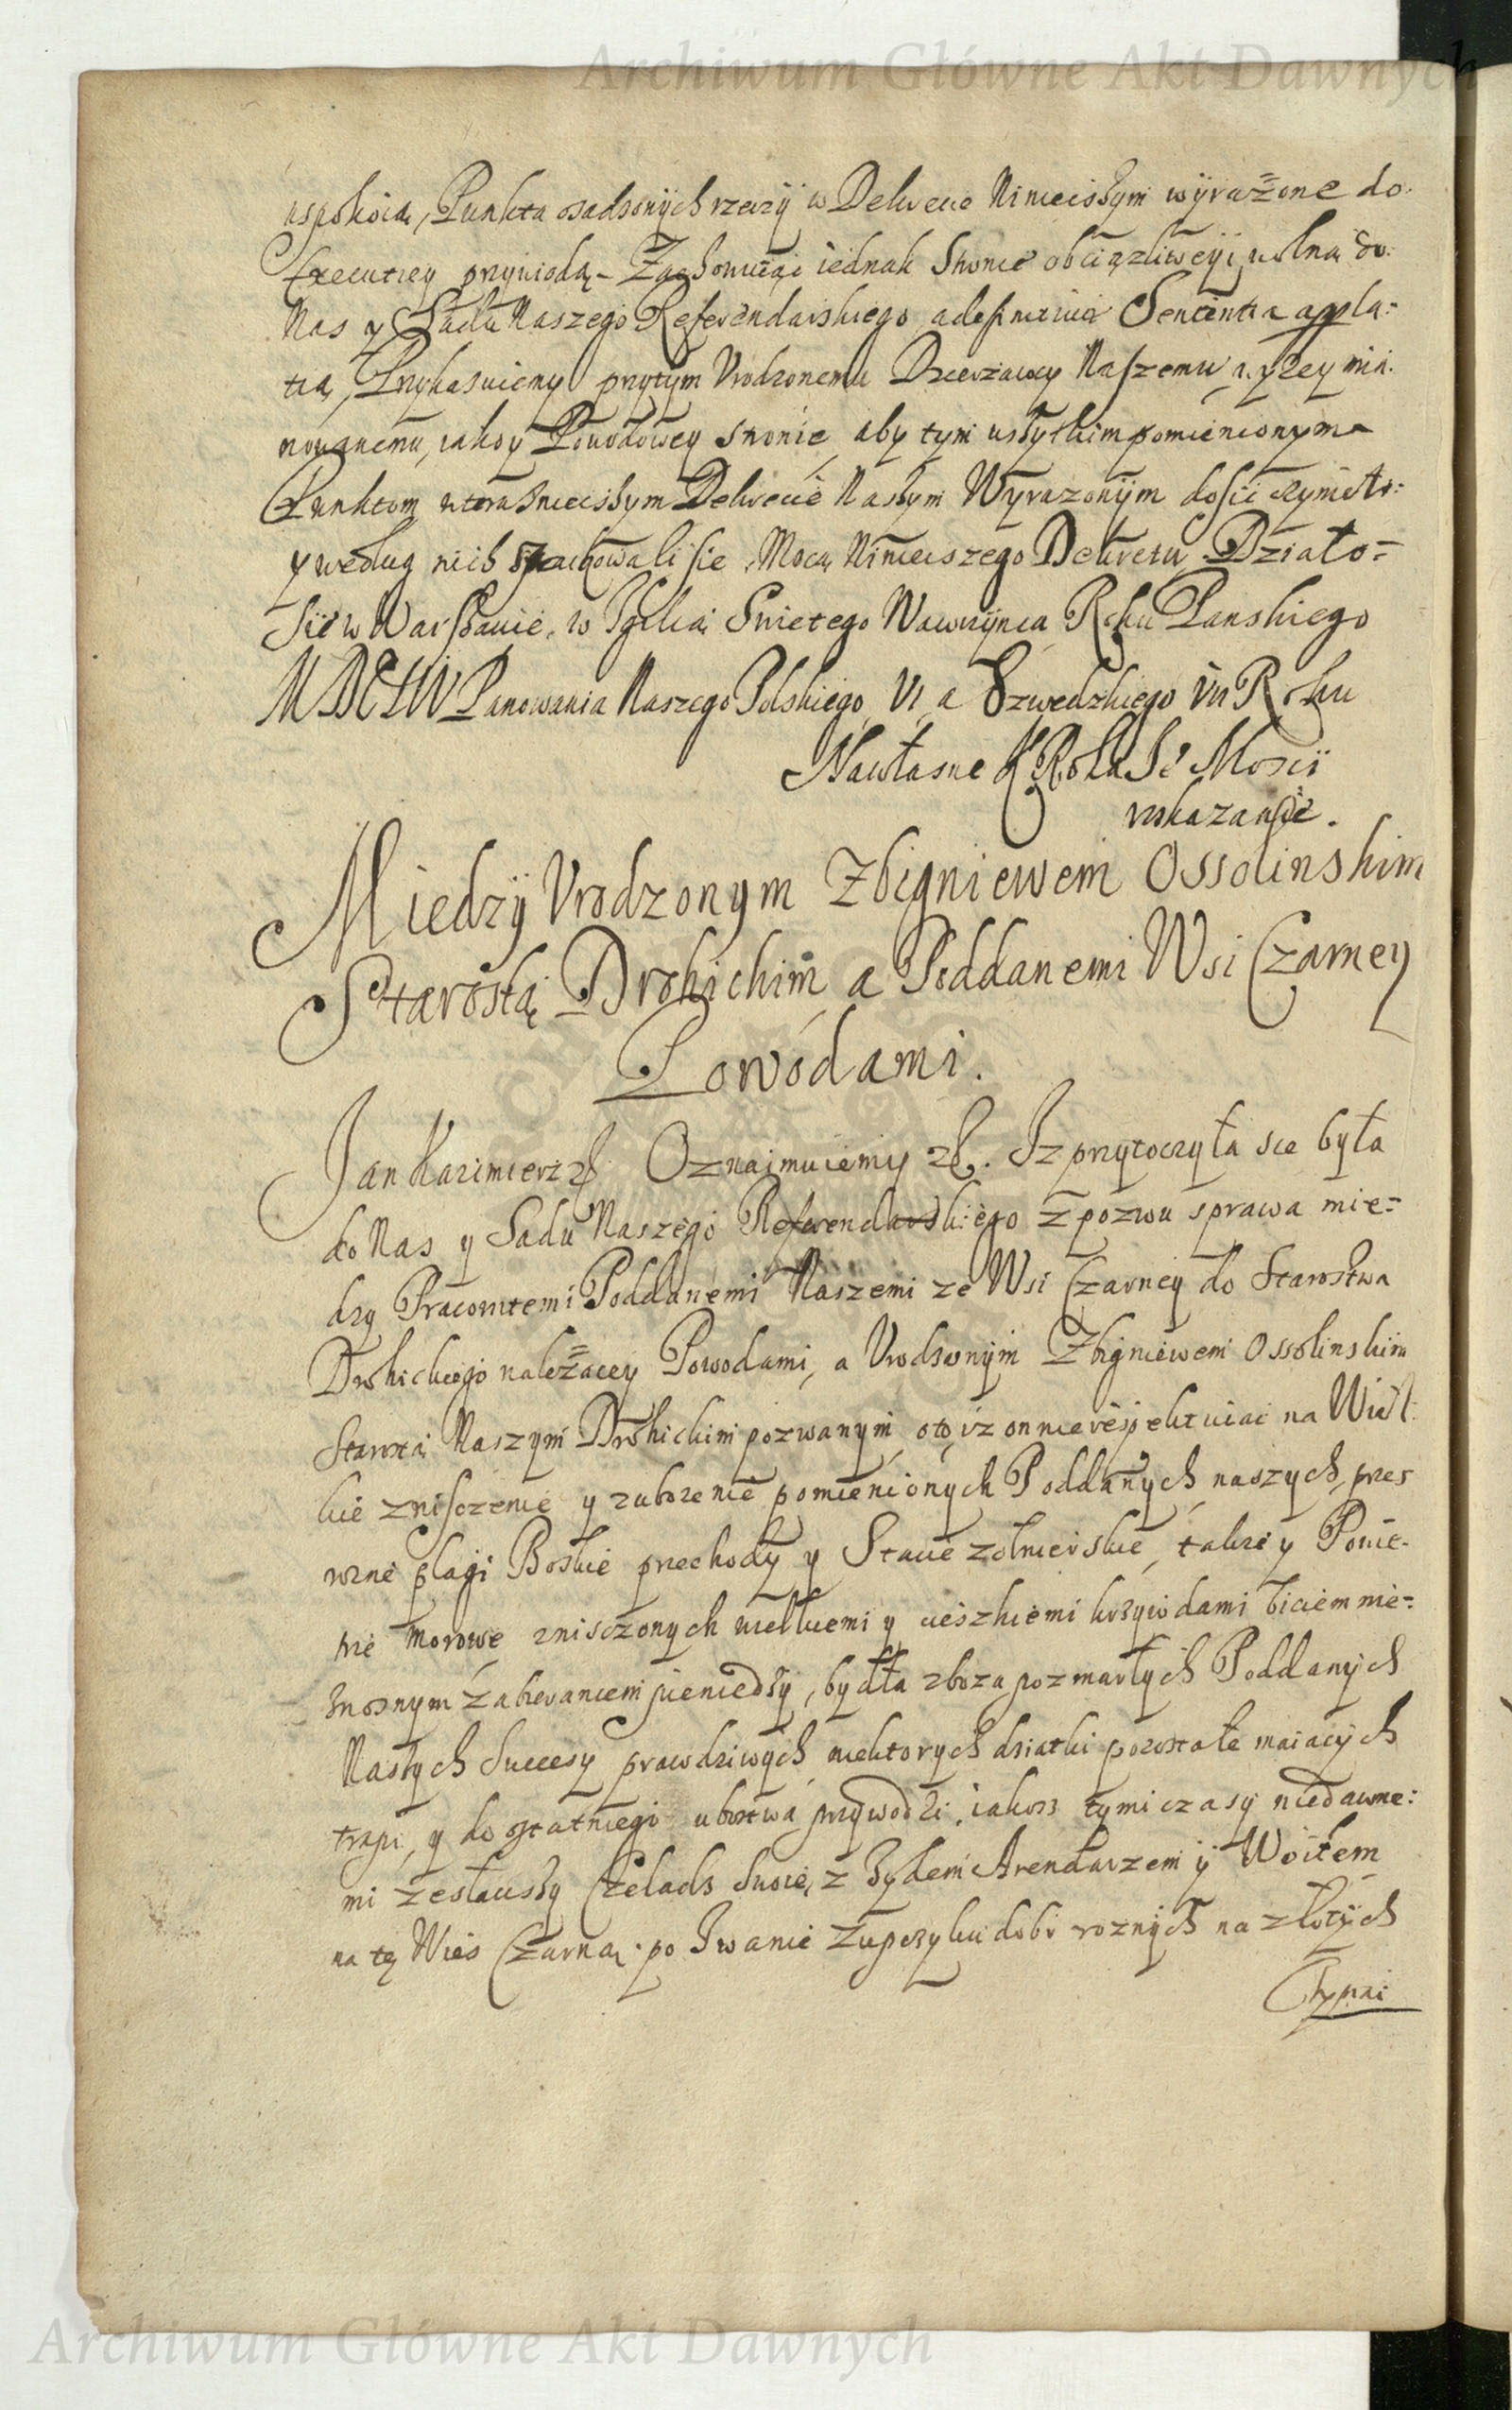 Archiwum Główne Akt Dawnych
uspokoią, Punkta osadzonych rzeczÿ w Dekrecie Ninieiszym wÿrażone do
Executiey przywiodą. Zachowuiąc iednak Stronie obciązliweÿ, wolną do
Nas y Sądu Naszego Referendarskiego a definitiua Sententia appla=
tią, Przykazuiemy przytym Vrodzonemu Dzierzawcy Naszemu wyżey mia
nowanemu, iako y Powodowey stronie, aby tym wszytkim pomienionym
Punktom w teraznieiszym Dekrecie Naszym Wyrazonÿm dosić czynieło
y według nich zachowali sie, Mocą Ninieiszego Dekretu. Działo=
Sie w Warszawie, w Wilią Swietego Wawrzÿnca Roku Panskiego
MDCLIV Panowania Naszego Polskiego VI a Szwedzkiego VII Roku
Na własne KRola Je Moscÿ
roskazanie.
Miedzÿ Vrodzonym Zbigniewem Ossolinskim
Starostą Drohickim a Poddanemi Wsi Czarney
Powodami.
Jan Kazimierz etc. Oznaimuiemy etc. Iz przytoczyła sie była
do Nas y Sadu Naszego Referendarskiego z pozwu sprawa mie=
dzy Pracowitemi Poddanemi Naszemi ze Wsi Czarney do Starostwa
Drohickiego należacey Powodami, a Vrodzonÿm Zbigniewem Ossolinskim
Starostą Naszym Drohickim pozwanym, oto iz on nie respektuiac na Wiel
kie znisczenie y zubozenie pomienionych Poddanych naszych, przez
rozne plagi Boskie przechody y Stacie zołnierskie, także y Powie=
trze morowe zniszczonych wielkiemi y cieszkiemi krzywdami biciem nie=
znosnym zabieraniem pieniedzy, bydła zboza po zmarłych Poddanych
Naszych Succesy prawdziwych, niektorych dziatki pozostałe maiacych
trapi, y do ostatniego ubostwa przywodzi, iakosz tymi czasy niedawne=
mi zesławszy Czeladz Swoię, z Zydem Arendarzem ÿ Woitem
na tę Wies Czarną, po Iwanie Zupczyku dobr roznych na złotych
Czterzi
Archiwum Główne Akt Dawnych